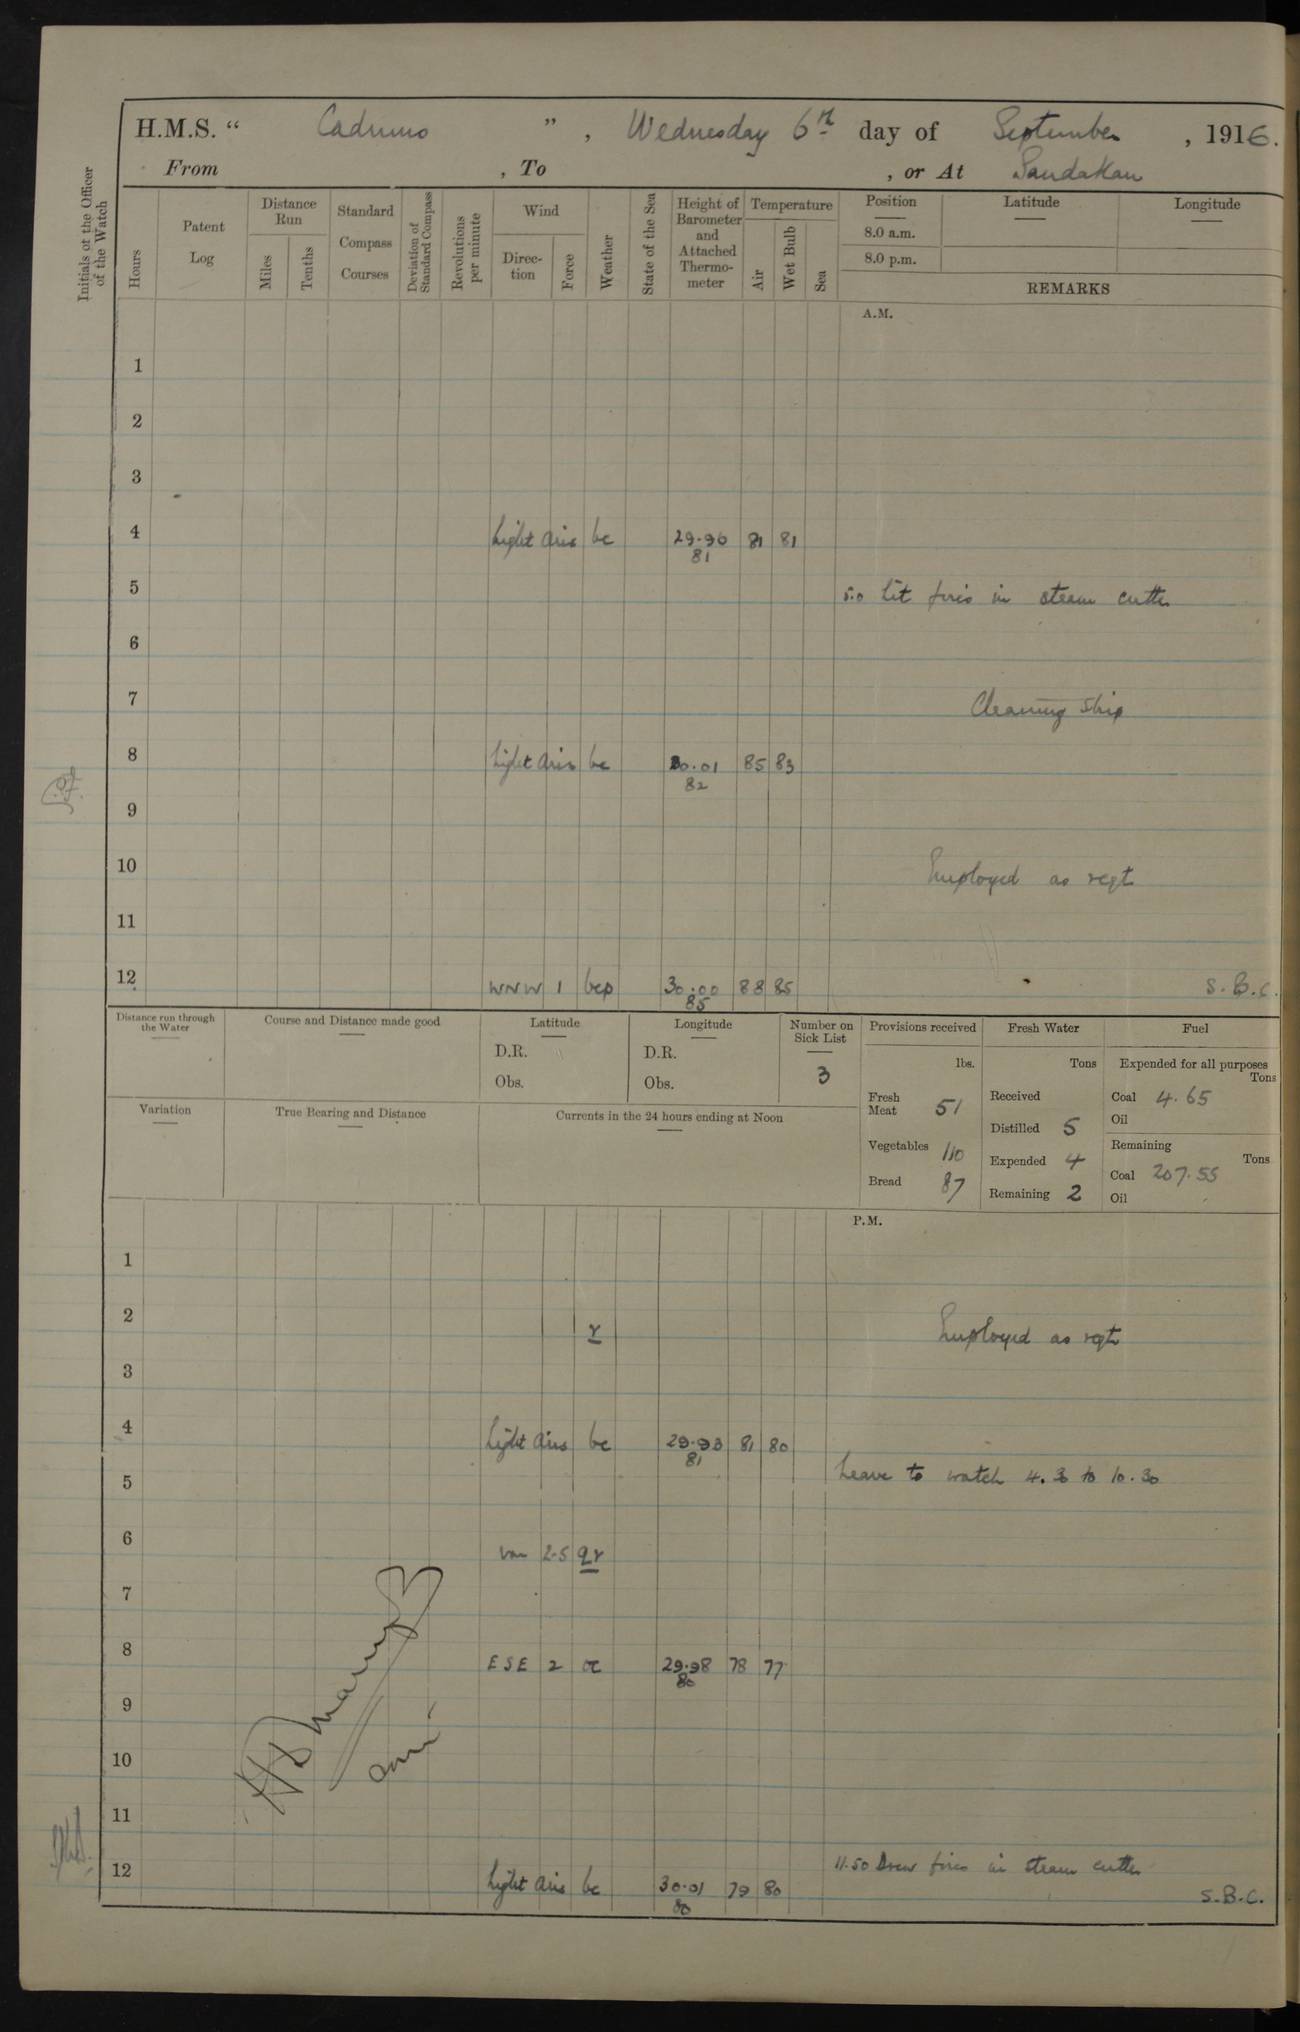 H.M.S. “ Cadmus ” , Wednesday 6th day of September , 1916.
From , To , or At Sandakan
Initials of the Officer of the Watch
Hours
Patent Log
Distance Run
Miles
Tenths
Standard Compass Courses
Deviation of Standard Compass
Revolutions per minute
Wind
Direction
Force
Weather
State of the Sea
Height of Barometer and Attached Thermometer
Temperature
Air
Wet Bulb
Sea
Position Latitude Longitude
8.0 a.m.
8.0 p.m.
REMARKS
A.M.
1
2
3
4 Light airs bc 29.96 81 81
81
5 5.0 Lit fires in steam cutter
6
7 Cleaning ship
8 Light airs bc 30.01 85 83
82
9
10 Employed as reqt
11
12 WNW 1 bcp 30.00 88 85 S.B.C.
85
Distance run through the Water
Course and Distance made good
Latitude
D.R.
Obs.
Longitude
D.R.
Obs.
Number on Sick List
3
Provisions received
lbs.
Fresh Meat 51
Vegetables 110
Bread 87
Fresh Water
Tons
Received
Distilled 5
Expended 4
Remaining 2
Fuel
Expended for all purposes
Tons
Coal 4.65
Oil
Remaining
Tons
Coal 207.55
Oil
Variation
True Bearing and Distance
Currents in the 24 hours ending at Noon
P.M.
1
2 r Employed as reqt
3
4 Light airs bc 29.93 81 80
81
Leave to watch 4.30 to 10.30
5
6 var 2-5 qr
7
8 ESE 2 oc 29.98 78 77
80
9
10
11
11.50 Drew fires in steam cutter
12 Light airs bc 30.01 79 80 S.B.C.
80